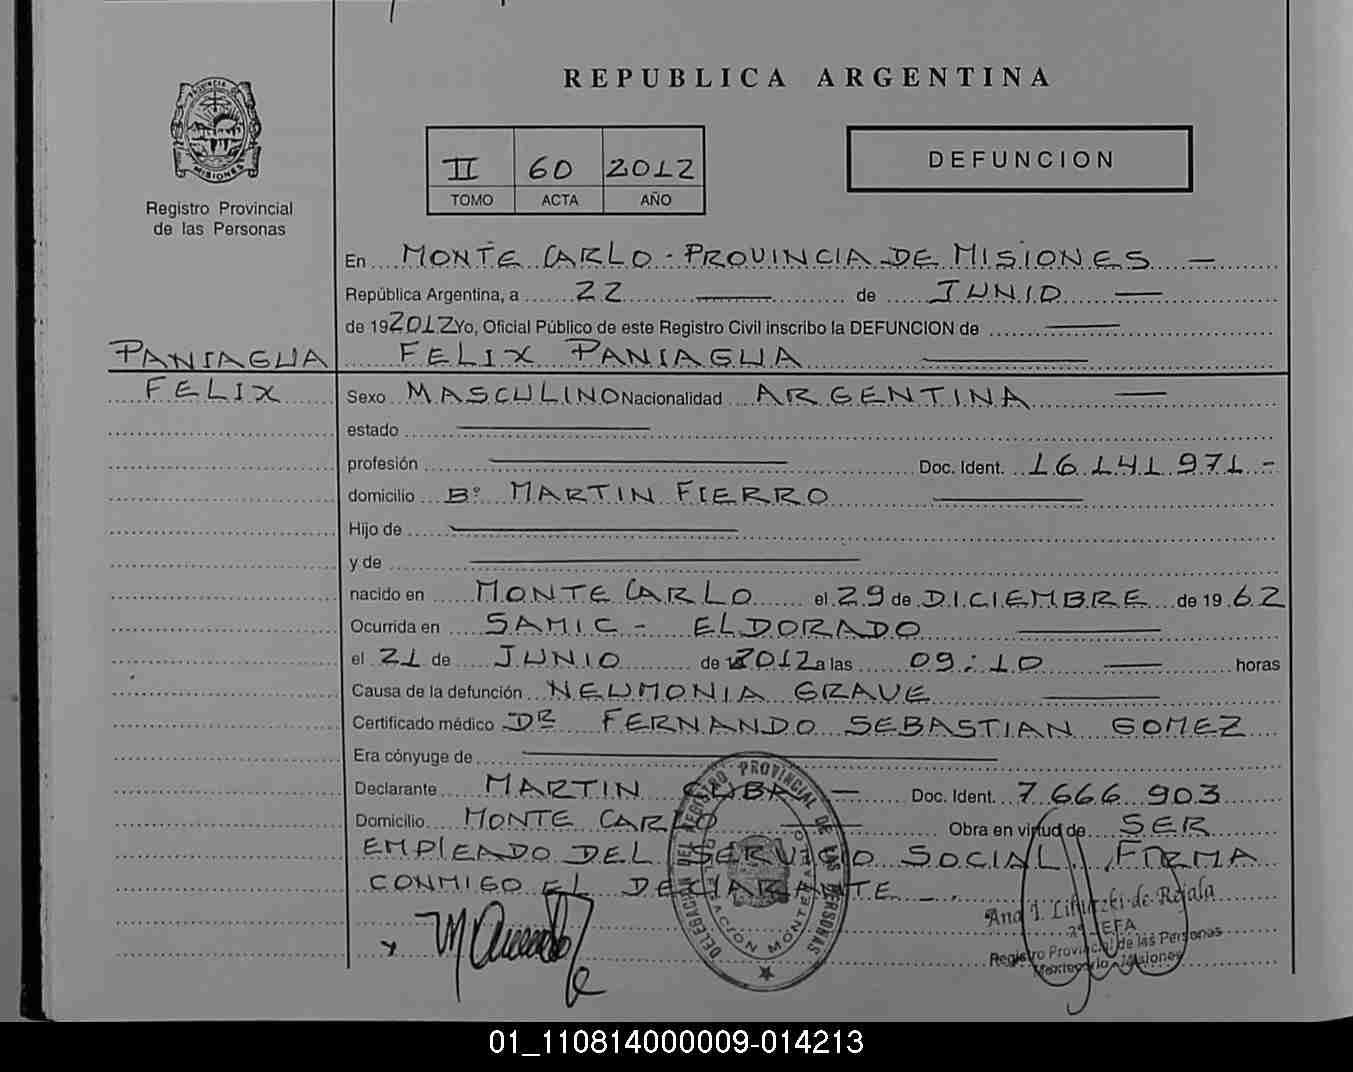 REPUBLICA ARGENTINA
PROVINCIA DE
MISIONES
Registro Provincial
de las Personas
II 60 2012
TOMO ACTA AÑO
DEFUNCION
En MONTE CARLO - PROVINCIA DE MISIONES —
República Argentina, a 22 — de JUNIO —
de 19 2012 Yo, Oficial Público de este Registro Civil inscribo la DEFUNCION de —
PANIAGUA
FELIX
FELIX PANIAGUA —
Sexo MASCULINO Nacionalidad ARGENTINA —
estado —
profesión — Doc. Ident. 16.141.971 -
domicilio Bº MARTIN FIERRO —
Hijo de —
y de —
nacido en MONTE CARLO el 29 de DICIEMBRE de 19 62
Ocurrida en SAMIC - ELDORADO —
el 21 de JUNIO de 2012 a las 09:10 — horas
Causa de la defunción NEUMONIA GRAVE —
Certificado médico DR FERNANDO SEBASTIAN GOMEZ
Era cónyuge de —
Declarante MARTIN CUBA — Doc. Ident. 7.666.903
Domicilio MONTE CARLO — Obra en virtud de SER
EMPLEADO DEL SERVICIO SOCIAL. FIRMA
CONMIGO EL DECLARANTE -.
REGISTRO PROVINCIAL DE LAS PERSONAS
Ana I. de Rejala
2º JEFA
Registro Provincial de las Personas
Misiones
01_110814000009-014213